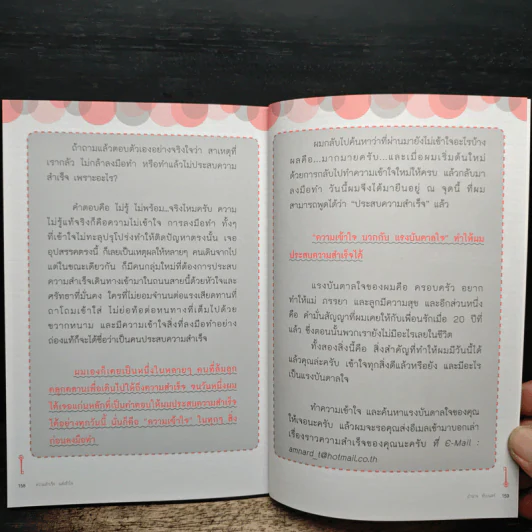 ถ้าถามแล้วตอบตัวเองอย่างจริงใจว่า สาเหตุที่
เรากลัว ไม่กล้าลงมือทำ หรือทำแล้วไม่ประสบความ
สำเร็จ เพราะอะไร?
คำตอบคือ ไม่รู้ ไม่พร้อม..จริงไหมครับ ความ
ไม่รู้แท้จริงก็คือความไม่เข้าใจ การลงมือทำ ทั้งๆ
ที่เข้าใจไม่ทะลุปรุโปร่งทำให้ติดปัญหาตรงนั้น เจอ
อุปสรรคตรงนี้ ก็เลยเป็นเหตุผลให้หลายๆ คนเดินจากไป
แต่ในขณะเดียวกัน ก็มีคนกลุ่มใหม่ที่ต้องการประสบ
ความสำเร็จเดินทางเข้ามาในถนนสายนี้ด้วยหัวใจและ
ศรัทธาที่มั่นคง ใครที่ไม่ยอมจำนนต่อแรงเสียดทานที่
ถาโถมเข้าใส่ ไม่ย่อท้อต่อหนทางที่เต็มไปด้วย
ขวากหนาม และมีความเข้าใจสิ่งที่ลงมือทำอย่าง
ถ่องแท้ก็จะได้ชื่อว่าเป็นคนประสบความสำเร็จ
ผมเองก็เคยเป็นหนึ่งในหลายๆ คนที่ล้มลุก
คลุกคลานเพื่อเดินไปให้ถึงความสำเร็จ จนวันหนึ่งผม
ได้เจอแก่นหลักที่เป็นคำตอบให้ผมประสบความสำเร็จ
ได้อย่างทุกวันนี้ นั่นก็คือ "ความเข้าใจ" ในทุกๆ สิ่ง
ก่อนลงมือทำ
158
ผมกลับไปค้นหาว่าที่ผ่านมายังไม่เข้าใจอะไรบ้าง
ผลคือ...มากมายครับ...และเมื่อผมเริ่มต้นใหม่
ด้วยการกลับไปทำความเข้าใจใหม่ให้ครบ แล้วกลับมา
ลงมือทำ วันนี้ผมจึงได้มายืนอยู่ ณ จุดนี้ ที่ผม
สามารถพูดได้ว่า "ประสบความสำเร็จ" แล้ว
"ความเข้าใจ บวกกับ แรงบันดาลใจ" ทำให้ผม
ประสบความสำเร็จได้
แรงบันดาลใจของผมคือ ครอบครัว อยาก
ทำให้แม่ ภรรยา และลูกมีความสุข และอีกส่วนหนึ่ง
คือ คำมั่นสัญญาที่ผมเคยให้กับเพื่อนรักเมื่อ 20 ปีที่
แล้ว ซึ่งตอนนั้นพวกเรายังไม่มีอะไรเลยในชีวิต
ทั้งสองสิ่งนี้คือ สิ่งสำคัญที่ทำให้ผมมีวันนี้ได้
แล้วคุณล่ะครับ เข้าใจทุกสิ่งดีแล้วหรือยัง และมีอะไร
เป็นแรงบันดาลใจ
ทำความเข้าใจ และค้นหาแรงบันดาลใจของคุณ
ให้เจอนะครับ แล้วผมจะรอคุณส่งอีเมลเข้ามาบอกเล่า
เรื่องราวความสำเร็จของคุณนะครับ ที่ E-Mail :
amnard_t@hotmail.co.th
159